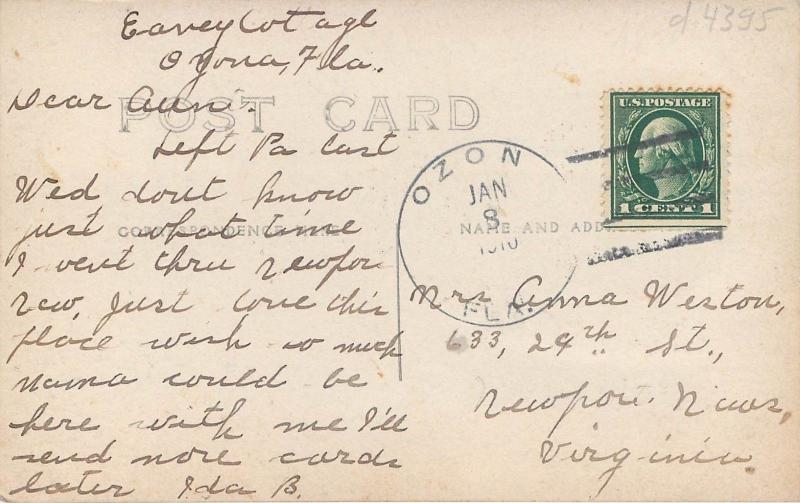 d 4395
Eavey Cottage
Ozona, Fla.
Dear Aunt.
POST CARD
Left Pa last
Wed dont know
just what time
I went thru Newpor
New, Just love this
place wish so much
Mama could be
here with me I'll
send more cards
later Ida B.
CORRESPONDENCE HERE
NAME AND ADD
U.S. POSTAGE
1 CENT 1
OZON
JAN
8
FLA.
Mrs Anna Weston,
633, 29th St.,
Newport News,
Virginia.